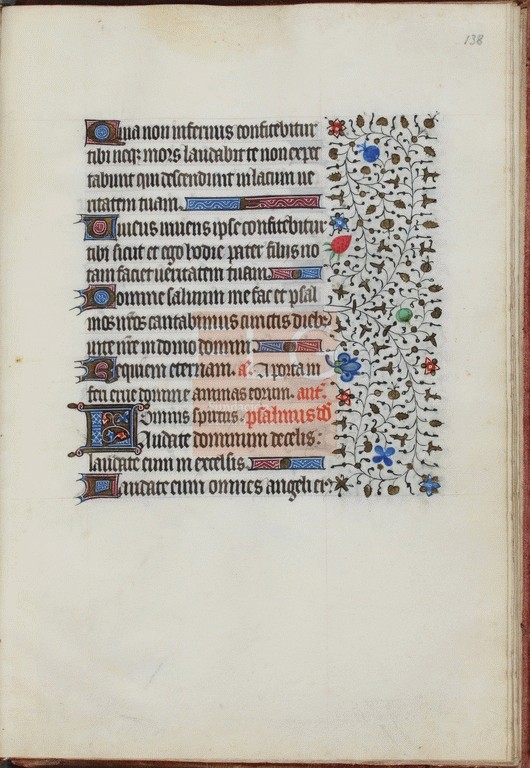 138
Quia non infernus confitebitur
tibi neq; mors laudabit te non expec
tabunt qui descendunt in lacum ue
ritatem tuam.
Uiuens uiuens ipse confitebitur
tibi sicut et ego hodie pater filiis no
tam faciet ueritatem tuam
Domine saluum me fac et psal
mos nr̄os cantabimus cunctis dieb;
uite nr̄e in domo domini
Requiem eternam. a. A porta in
feri erue domine animas eorum. ant.
Omnis spiritus. psalmus dd
Laudate dominum de celis:
laudate eum in excelsis.
Laudate eum omnes angeli ei